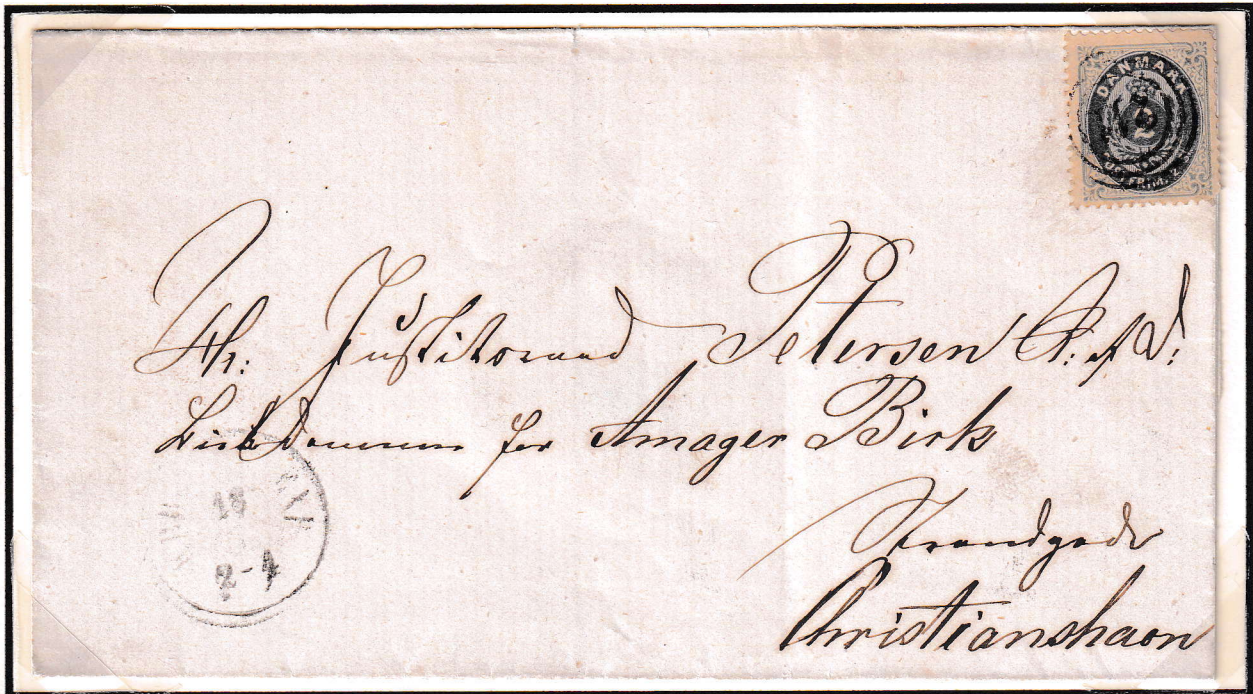 DANMARK
2
POSTFRIM. SK.
Hr: Justitsraad Petersen R: af D:
Birkdommer for Amager Birk
Strandgade
Christianshavn
18
2-4